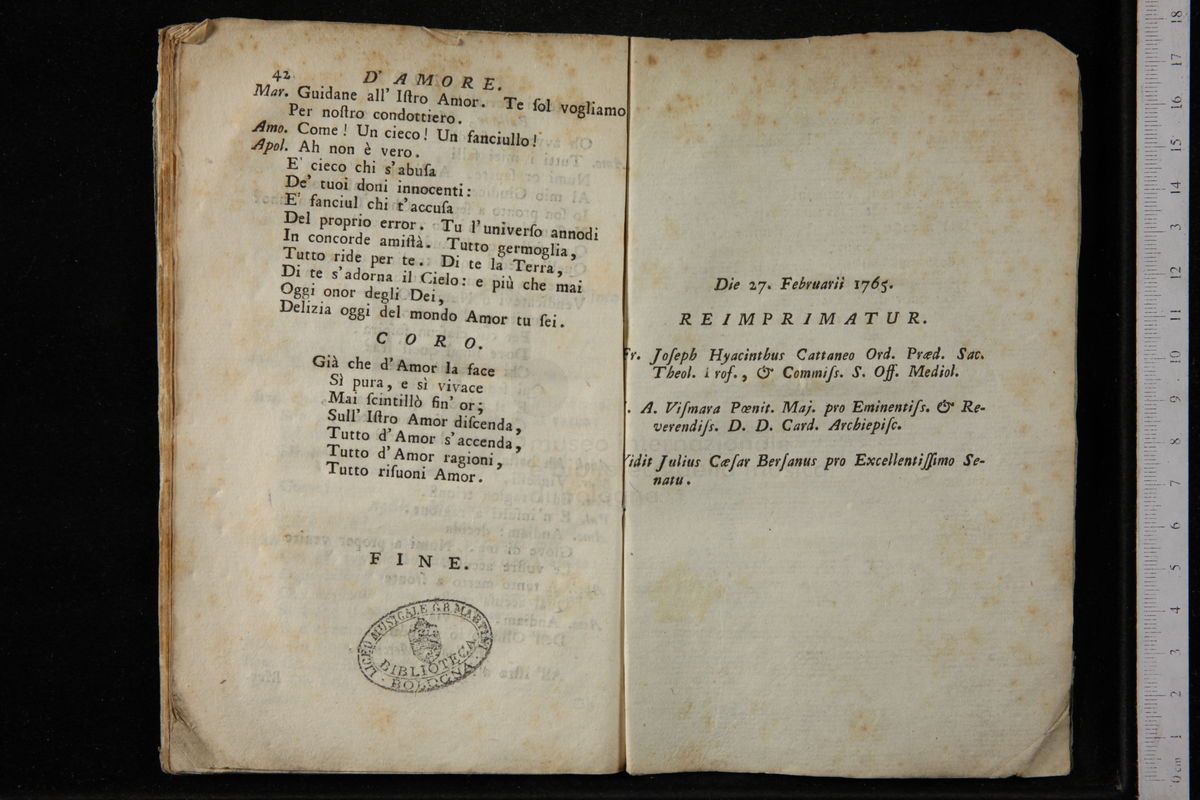 42 D' AMORE.
Mar. Guidane all' Iſtro Amor. Te ſol vogliamo
Per noſtro condottiero.
Amo. Come! Un cieco! Un fanciullo!
Apol. Ah non è vero.
E' cieco chi s'abuſa
De' tuoi doni innocenti:
E' fanciul chi t'accuſa
Del proprio error. Tu l'univerſo annodi
In concorde amiſtà. Tutto germoglia,
Tutto ride per te. Di te la Terra,
Di te s'adorna il Cielo: e più che mai
Oggi onor degli Dei,
Delizia oggi del mondo Amor tu ſei.
CORO.
Già che d'Amor la face
Sì pura, e sì vivace
Mai ſcintillò fin' or;
Sull' Iſtro Amor diſcenda,
Tutto d'Amor s'accenda,
Tutto d'Amor ragioni,
Tutto riſuoni Amor.
FINE.
LICEO MUSICALE G.B. MARTINI
BIBLIOTECA
BOLOGNA
Die 27. Februarii 1765.
REIMPRIMATUR.
Fr. Joſeph Hyacinthus Cattaneo Ord. Præd. Sac.
Theol. Prof., & Commiſs. S. Off. Mediol.
A. Viſmara Pœnit. Maj. pro Eminentiſs. & Re-
verendiſs. D. D. Card. Archiepiſc.
Vidit Julius Cæſar Berſanus pro Excellentiſſimo Se-
natu.
0 cm 1 2 3 4 5 6 7 8 9 10 11 12 13 14 15 16 17 18